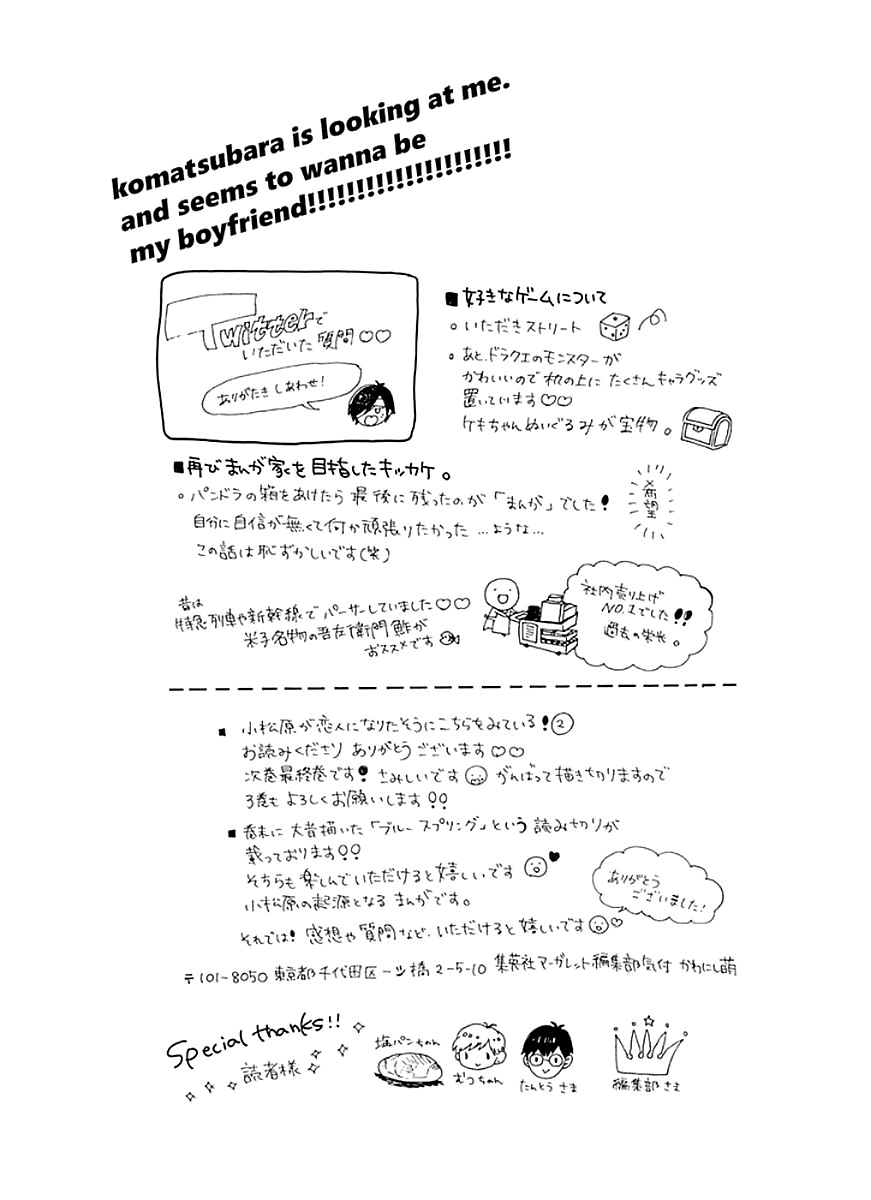 komatsubara is looking at me.
and seems to wanna be
my boyfriend!!!!!!!!!!!!!!!!!!!!!
Twitterで
いただいた質問♡♡
ありがたきしあわせ!
■好きなゲームについて
○いただきストリート
○あと、ドラクエのモンスターが
かわいいので机の上にたくさんキャラグッズ
置いています♡♡
ケキちゃんぬいぐるみが宝物。
■再びまんが家を目指したキッカケ。
○パンドラの箱をあけたら最後に残ったのが「まんが」でした!
希望
自分に自信が無くて何か頑張りたかった…ような…
この話は恥ずかしいです(笑)
昔は
特急列車や新幹線でパーサーしていました♡♡
米子名物の吾左衛門鮓が
おススメです
社内売り上げ
NO.1でした!!
過去の栄光。
■小松原が恋人になりたそうにこちらをみている!②
お読みくださりありがとうございます♡♡
次巻最終巻です!さみしいです がんばって描き切りますので
3巻もよろしくお願いします!!
■巻末に大昔描いた「ブルースプリング」という読み切りが
載っております!!
そちらも楽しんでいただけると嬉しいです
小松原の起源となるまんがです。
ありがとう
ございました!
それでは!感想や質問など、いただけると嬉しいです♡
〒101-8050 東京都千代田区一ツ橋2-5-10 集英社マーガレット編集部気付 かわにし萌
Special thanks!!
読者様
塩パンちゃん
むつちゃん
たんとうさま
編集部さま